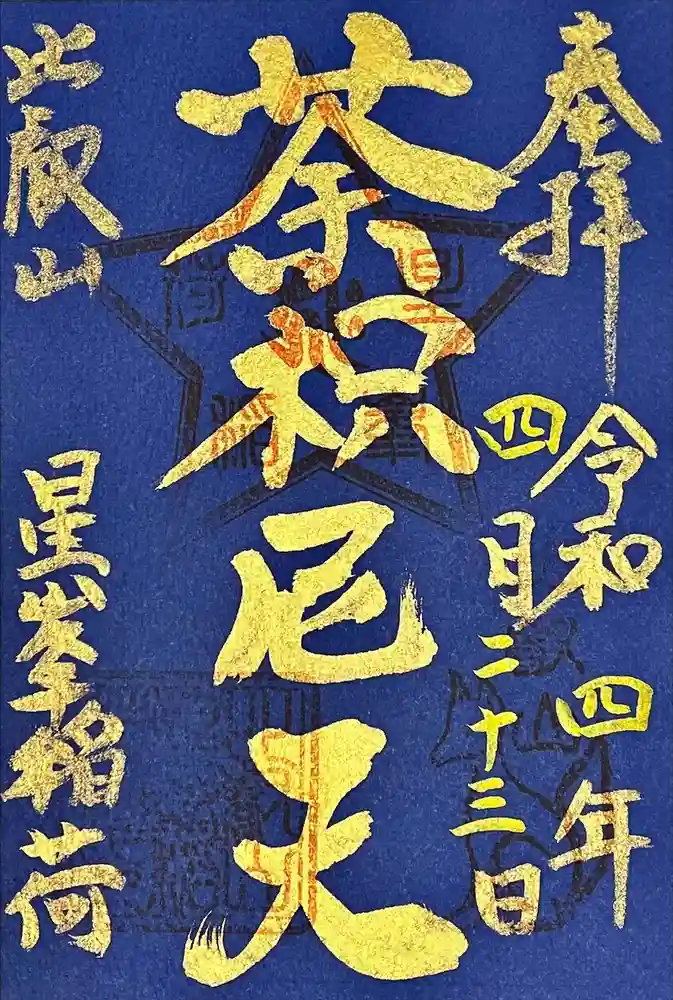 奉拝
令和四年
四月二十三日
荼枳尼天
比叡山
星峯稲荷